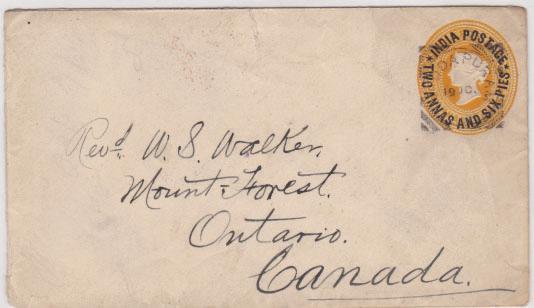 ★ INDIA POSTAGE ★
TWO ANNAS AND SIX PIES
Revd. W. S. Walker,
Mount-Forest.
Ontario.
Canada.